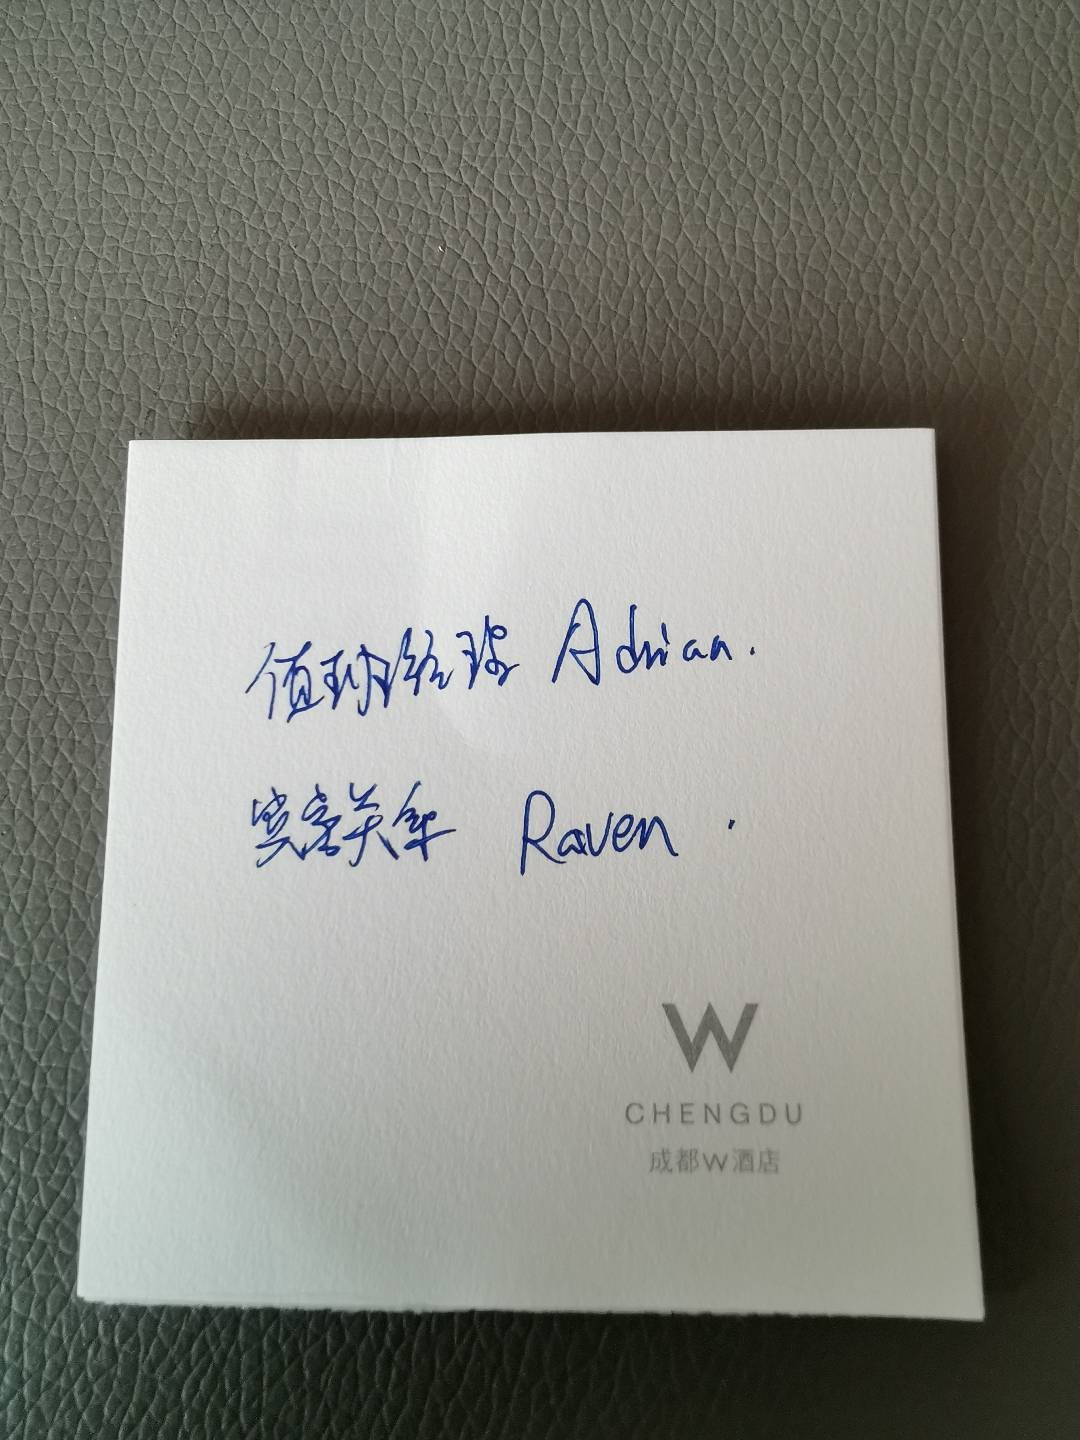 值班经理 Adrian.
宾客关系 Raven.
W
CHENGDU
成都W酒店